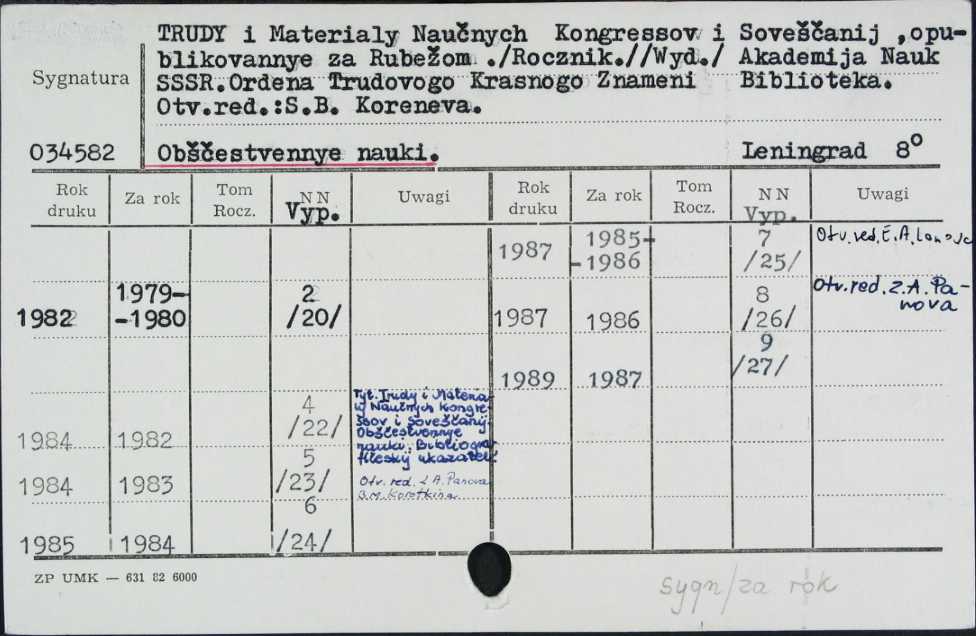 TRUDY i Materialy Naučnych Kongressov i Soveščanij ,opu-
blikovannye za Rubežom ./Rocznik.//Wyd./ Akademija Nauk
Sygnatura
SSSR.Ordena Trudovogo Krasnogo Znameni Biblioteka.
Otv.red.:S.B. Koreneva.
034582 Obščestvennye nauki. Leningrad 8°
Rok druku Za rok Tom Rocz. NN Vyp. Uwagi Rok druku Za rok Tom Rocz. NN Vyp. Uwagi
1987 1985-
-1986 7
/25/ Otv. red. E.A.
1982 1979-
-1980 2
/20/
1987 1986 8
/26/ Otv. red. Z.A. Pa-
nova
1989 1987 9
/27/
1984 1982 4
/22/
Tyt. Trudy i Materia-
ly Naučnych Kongre-
ssov i Soveščanij
Obščestvennye
nauki. Bibliogra-
fičeskij ukazatel'
1984 1983 5
/23/ Otv. red. Z.A. Panova
B.M.
1985 1984 6
/24/
ZP UMK — 631 82 6000
sygn/za rok